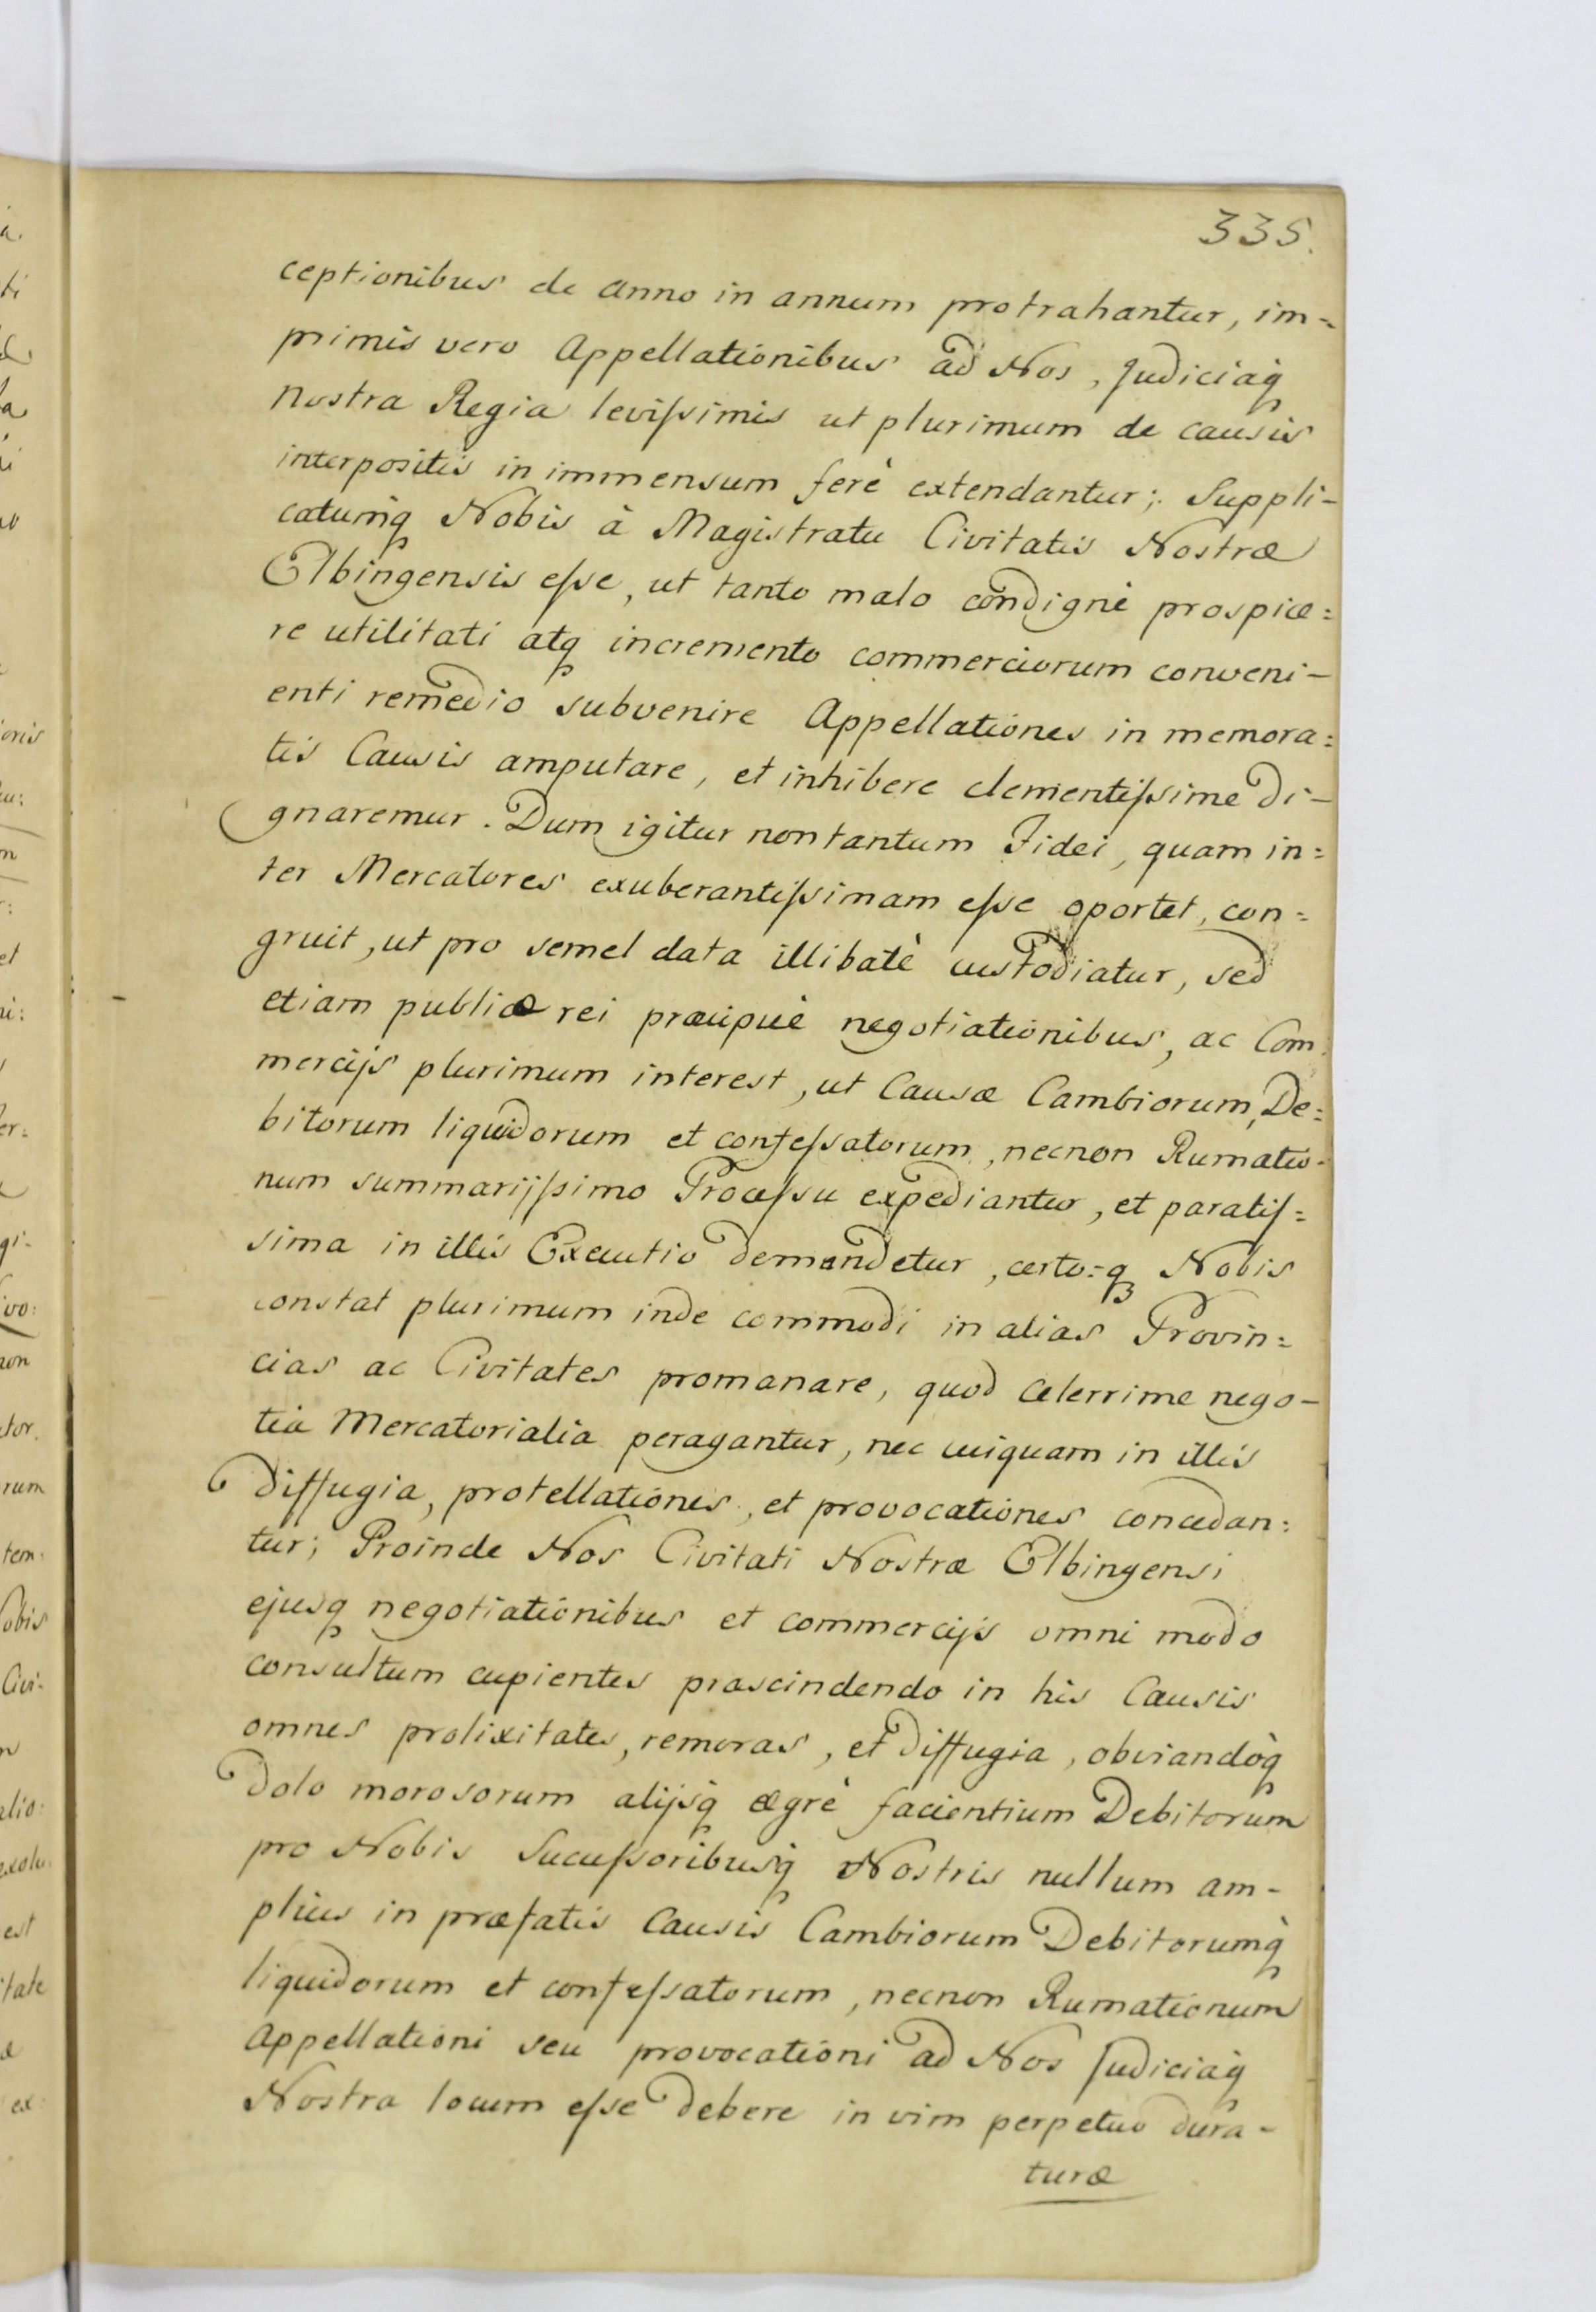 335.
ceptionibus de anno in annum protrahantur, im=
primis vero Appellationibus ad Nos, Judiciaq̃
nostra Regia leviſsimis ut plurimum de causis
interpositis in immensum ferè extendantur; Suppli-
catumq̃ Nobis à Magistratu Civitatis Nostræ
Elbingensis eſse, ut tanto malo condignè prospice=
re utilitati atq̃ incremento commerciorum conveni-
enti remedio subvenire Appellationes in memora=
tis Causis amputare, et inhibere clementiſsime di-
gnaremur. Dum igitur non tantum Fidei, quam in=
ter Mercatores exuberantiſsimam eſse oportet, con=
gruit, ut pro semel data illibatè custodiatur, sed
etiam publicæ rei præcipuè negotiationibus, ac Com
mercijs plurimum interest, ut Causæ Cambiorum, De=
bitorum liquidorum et confeſsatorum, necnon Rumatio-
num summarijſsimo Proceſsu expediantur, et paratiſ=
sima in illis Executio demandetur, certo=q̃ Nobis
constat plurimum inde commodi in alias Provin=
cias ac Civitates promanare, quod celerrime nego-
tia Mercatorialia peragantur, nec cuiquam in illis
diffugia, protellationes, et provocationes concedan=
tur; Proinde Nos Civitati Nostræ Elbingensi
ejusq̃ negotiationibus et commercijs omni modo
consultum cupientes præscindendo in his Causis
omnes prolixitates, remoras, et diffugia, obviandoq̃
dolo morosorum alijsq̃ ægrè facientium Debitorum
pro Nobis Succeſsoribusq̃ Nostris nullum am-
plius in præfatis Causis Cambiorum Debitorumq̃
liquidorum et confeſsatorum, necnon Rumationum
Appellationi seu provocationi ad Nos Judiciaq̃
Nostra locum eſse debere in vim perpetuo dura-
turæ